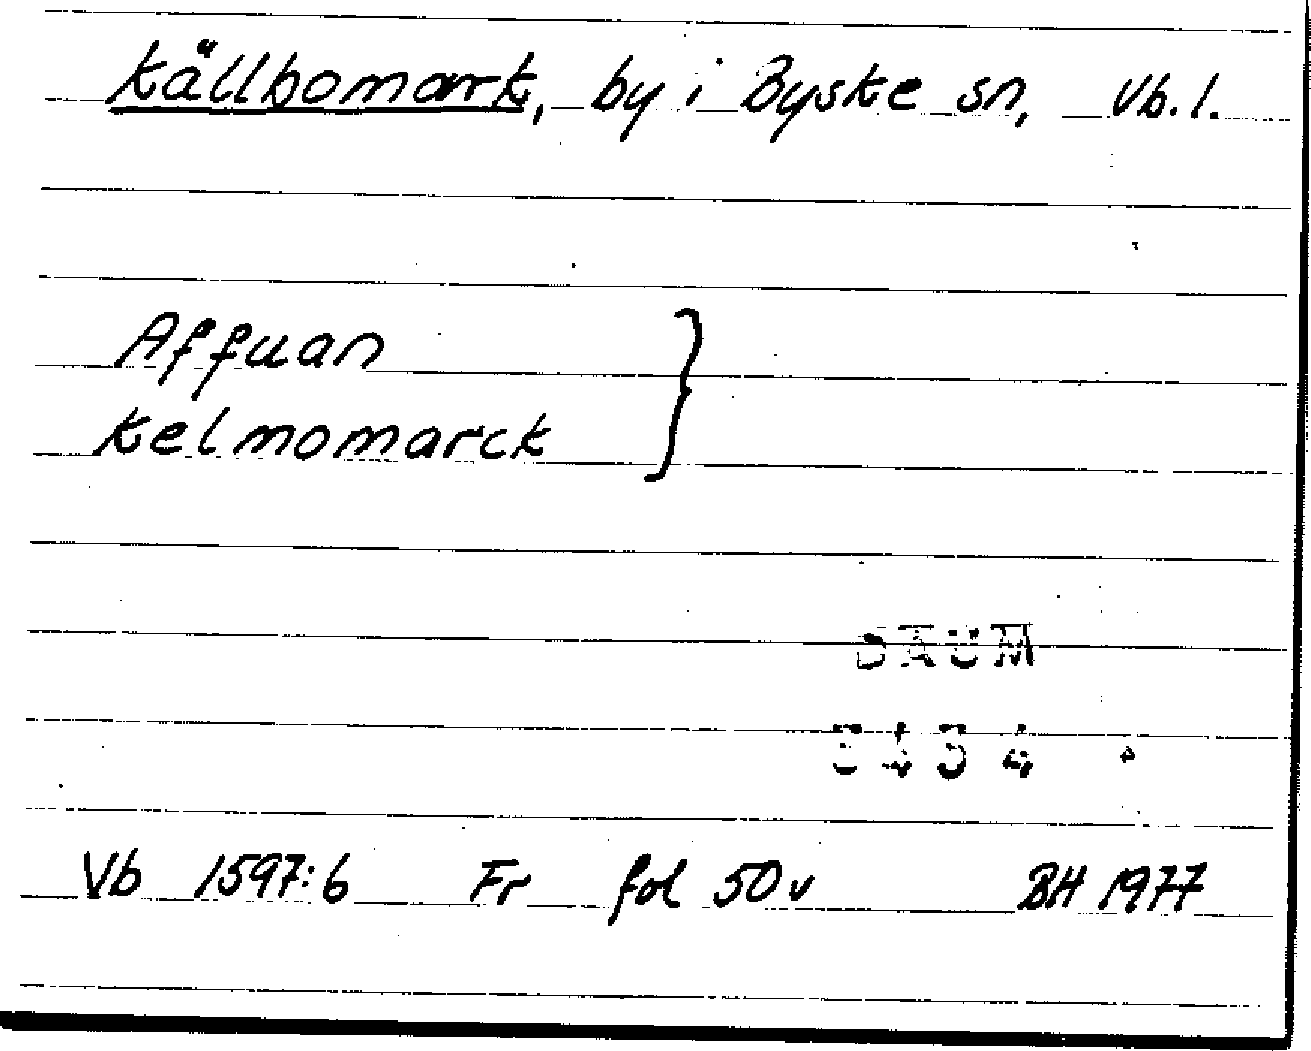 Källbomark, by i Byske sn, Vb. l.
Affuan
Kelmomarck
DAUM
3434
Vb 1597:6 Fr fol 50v BH 1977